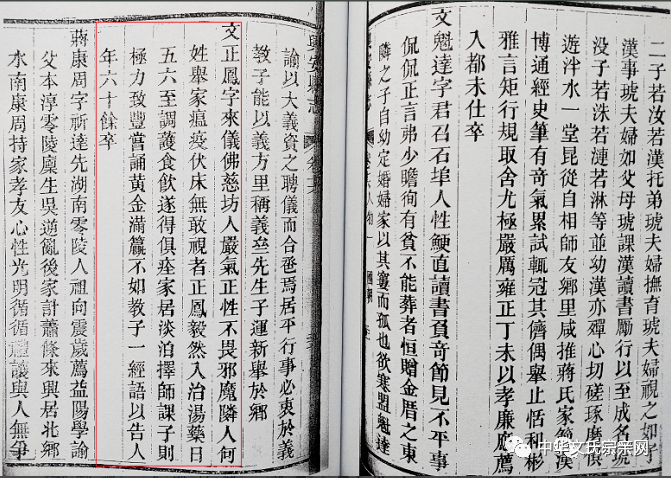 二子若汝若漢托弟琥夫婦撫育琥夫婦視之如子
漢事琥夫婦如父母琥課漢讀書勵行以至成名琥
没子若洙若漣若淋等並幼漢亦殫心切磋琢磨俱
遊泮水一堂昆從自相師友鄉里咸推蔣氏家
博通經史筆有奇氣累試輒冠其儕偶舉止恬和彬
雅言矩行規取舍尤極嚴厲雍正丁未以孝廉應薦
入都未仕卒
文魁達字君召石埠人性鯁直讀書負奇節見不平事
侃侃正言弗少瞻徇有貧不能葬者恒贈金厝之東
隣之子自幼定婚婦家以其窶而孤也欲寒盟魁達
諭以大義資之聘儀而合卺焉居平行事必衷於義
教子能以義方里稱義叁先生子運新舉於鄉
文正鳳字來儀佛慈坊人嚴氣正性不畏邪魔隣人何
姓舉家瘟疫伏床無敢視者正鳳毅然入治湯藥日
五六至調護食飲遂得俱痊家居淡泊擇師課子則
極力致豐嘗誦黃金滿籯不如教子一經語以告人
年六十餘卒
蔣康周字祈達先湖南零陵人祖向震歲薦益陽學諭
父本淳零陵廩生吳逆亂後家計蕭條來興居北鄉
水南康周持家孝友心性光明循循禮議與人無爭
興安縣志
中华文氏宗亲网